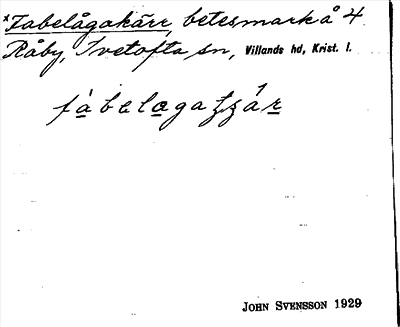 *Fabelågakärr, betesmark å 4
Råby, Ivetofta sn, Villands hd, Krist. l.
JOHN SVENSSON 1929